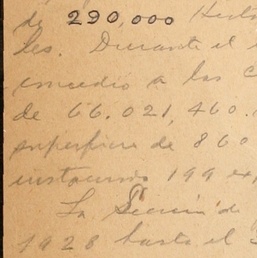 de 290,000 Hect
les. Durante el
concedió a las C
de 66.021,460.
superficie de 860
199 ex
La Sección de
1928 hasta el